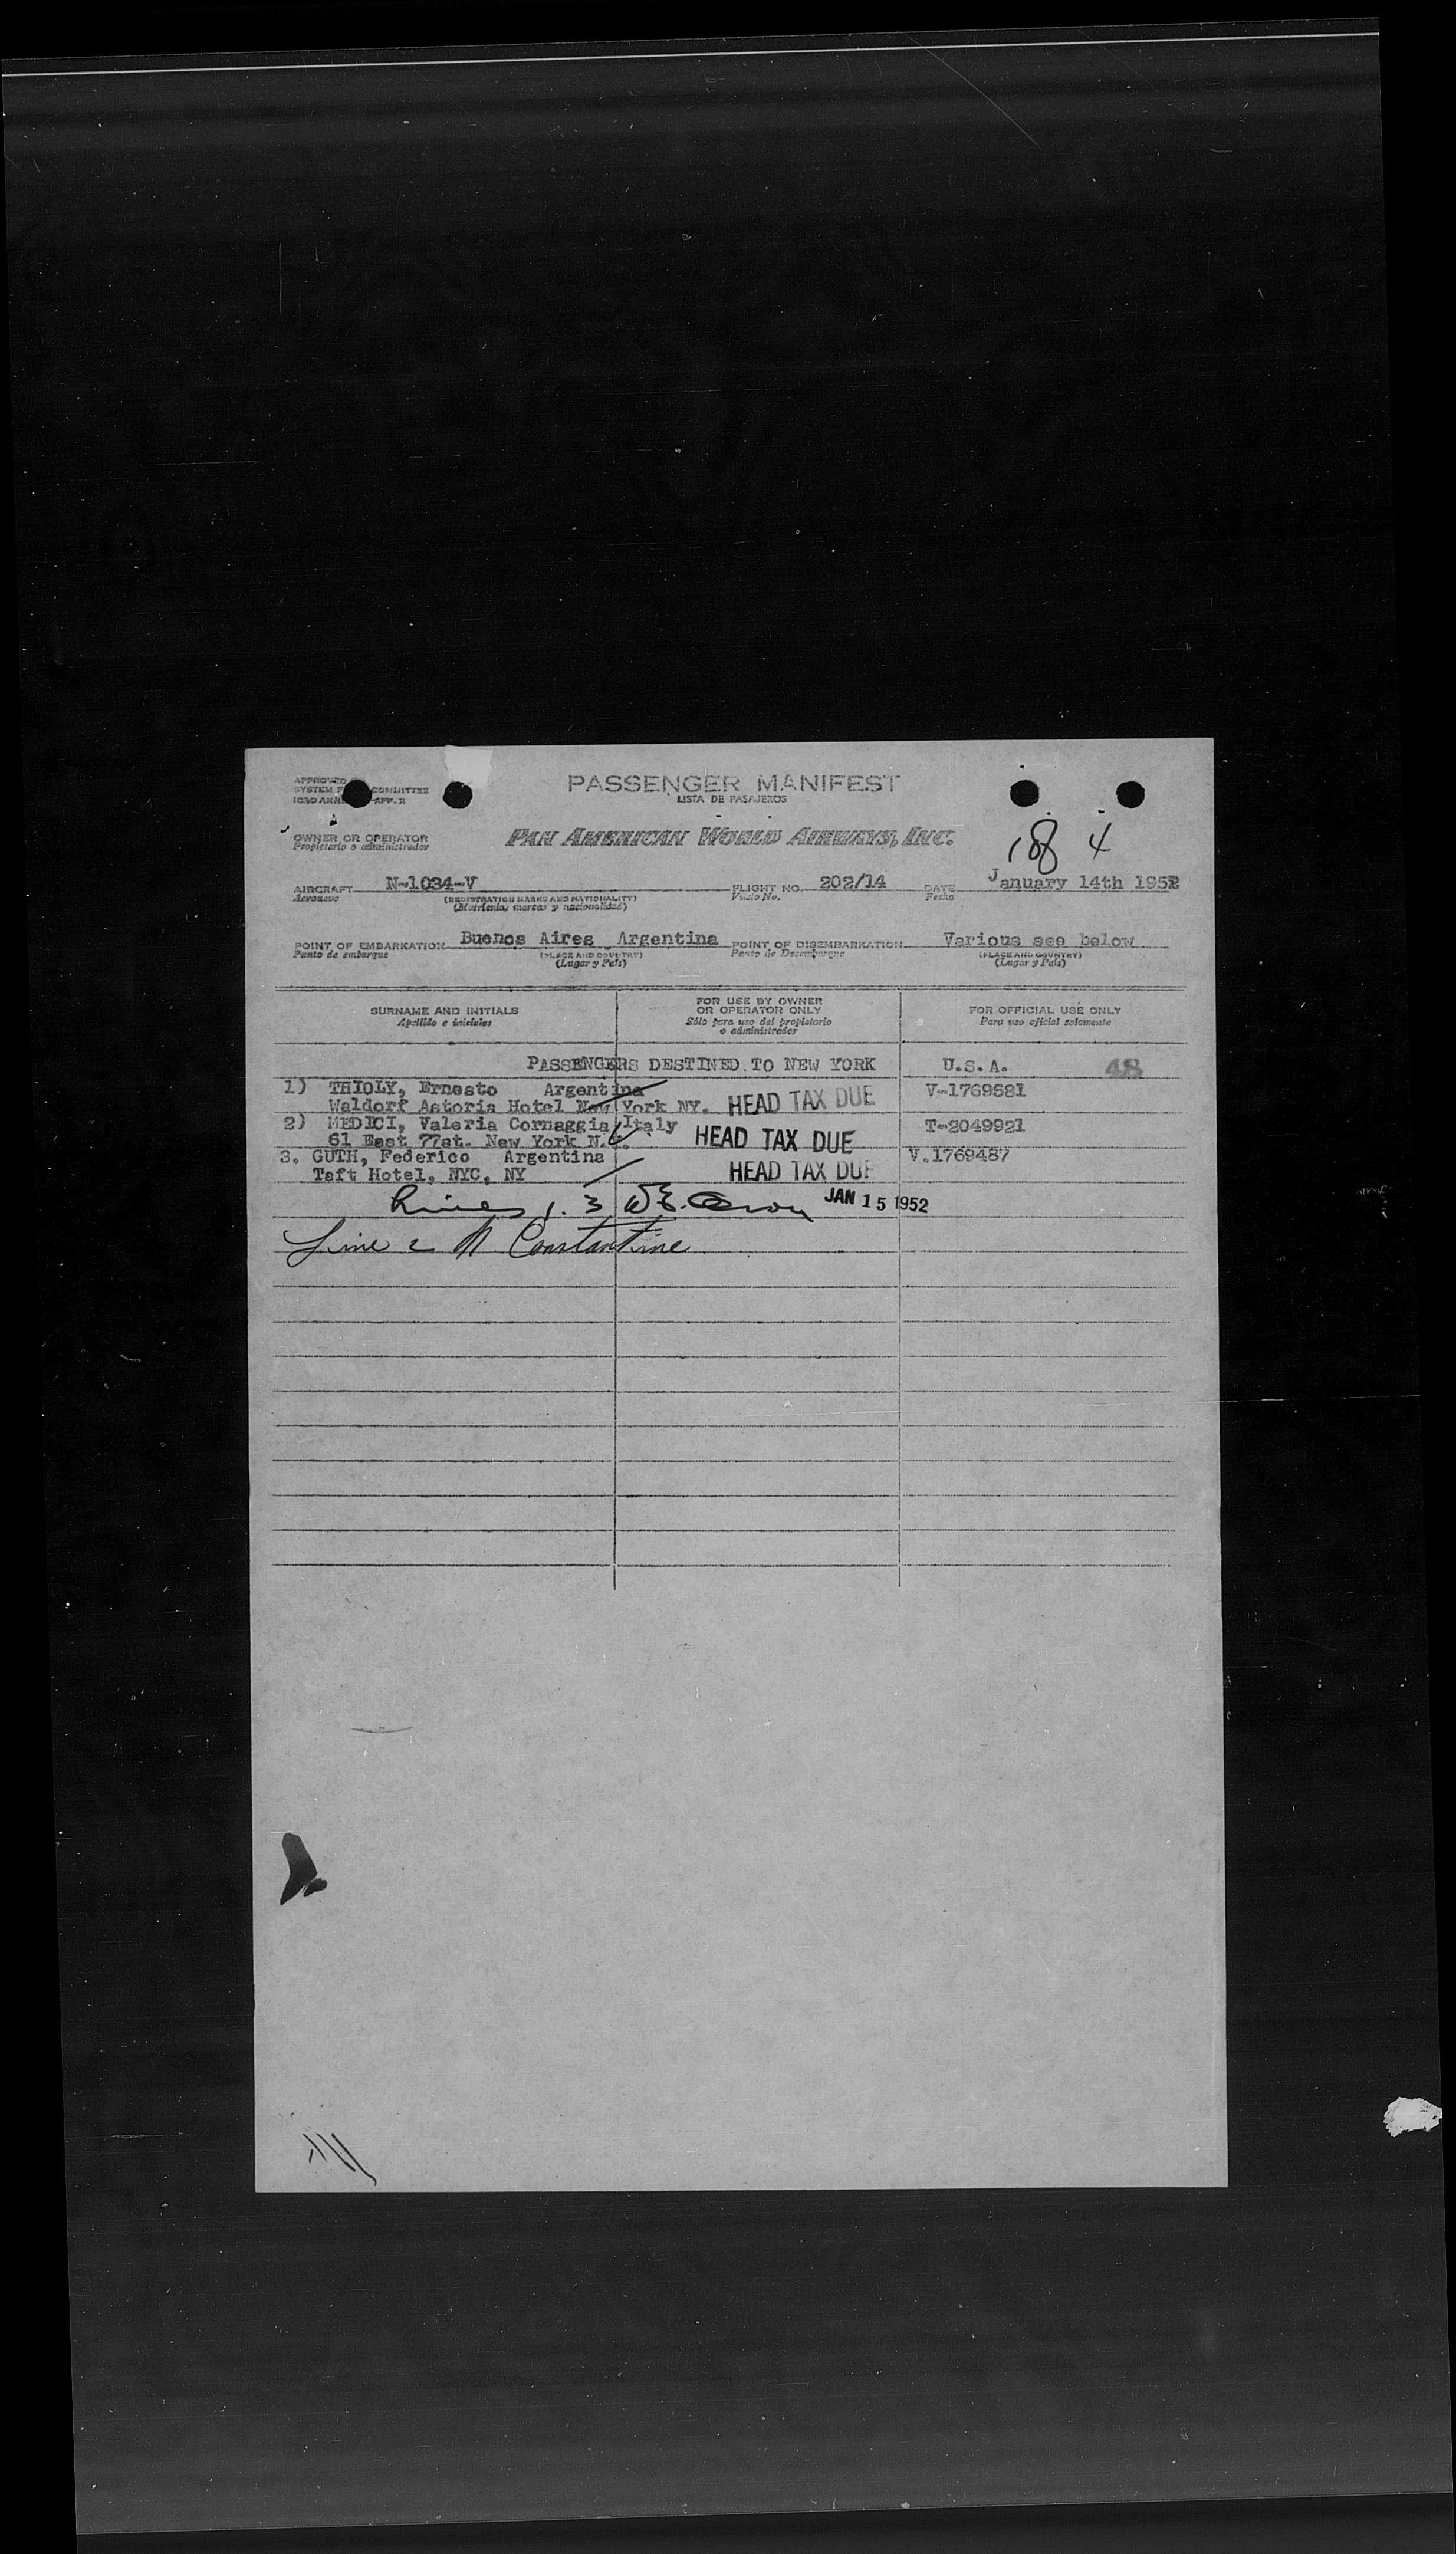 PASSENGER MANIFEST
LISTA DE PASAJEROS
APPROVED
SYSTEM COMMITTEE
ICAO ANNEX APP. 2
OWNER OR OPERATOR
Propietario o administrador
PAN AMERICAN WORLD AIRWAYS, INC.
18 4
AIRCRAFT N-1034-V FLIGHT NO. 202/14 DATE January 14th 1952
Aeronave (REGISTRATION MARKS AND NATIONALITY) Vuelo No. Fecha
(Matrícula, marcas y nacionalidad)
POINT OF EMBARKATION Buenos Aires Argentina POINT OF DISEMBARKATION Various see below
Punto de embarque (PLACE AND COUNTRY) Punto de Desembarque (PLACE AND COUNTRY)
(Lugar y País) (Lugar y País)
SURNAME AND INITIALS
Apellido e iniciales
FOR USE BY OWNER
OR OPERATOR ONLY
Sólo para uso del propietario
o administrador
FOR OFFICIAL USE ONLY
Para uso oficial solamente
PASSENGERS DESTINED TO NEW YORK U.S.A. 48
1) THIOLY, Ernesto Argentina V-1769681
Waldorf Astoria Hotel New York NY. HEAD TAX DUE
2) MEDICI, Valeria Cornaggia Italy T-2049921
61 East 77st. New York N.Y. HEAD TAX DUE
3. GUTH, Federico Argentina V.1769487
Taft Hotel, NYC, NY HEAD TAX DUE
Lines 1. 3 JAN 15 1952
Line 2 Constantine